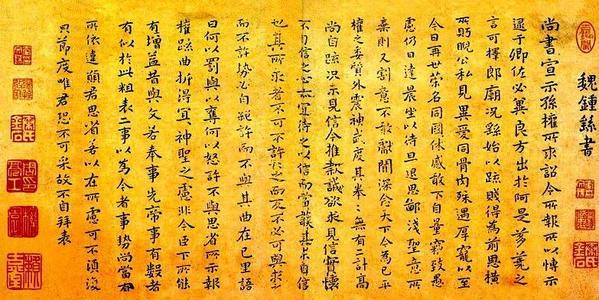 魏鍾繇書
尚書宣示孫權所求詔令所報所以博示
逮于卿佐必冀良方出於阿是芻蕘之
言可擇郎廟況繇始以疏賤得為前思橫
所盱睨公私見異愛同骨肉殊遇厚寵以至
今日再世榮名同國休慼敢不自量竊致愚
慮仍日達晨坐以待旦退思鄙淺聖意所
棄則又割意不敢獻聞深念天下今為已平
權之委質外震神武度其拳拳無有二計高
尚自疏況未見信今推款誠欲求見信實懷
不自信之心亦宜待之以信而當護其未自信
也其所求者不可不許許之而反不必可與求之
而不許勢必自絕許而不與其曲在己里語
曰何以罰與以奪何以怒許不與思省所示報
權疏曲折得宜神聖之慮非今臣下所能
有增益昔與文若奉事先帝事有數者
有似於此粗表二事以為今者事勢尚當有
所依違願君思省若以在所慮可不須復
貌節度唯君恐不可采故不自拜表